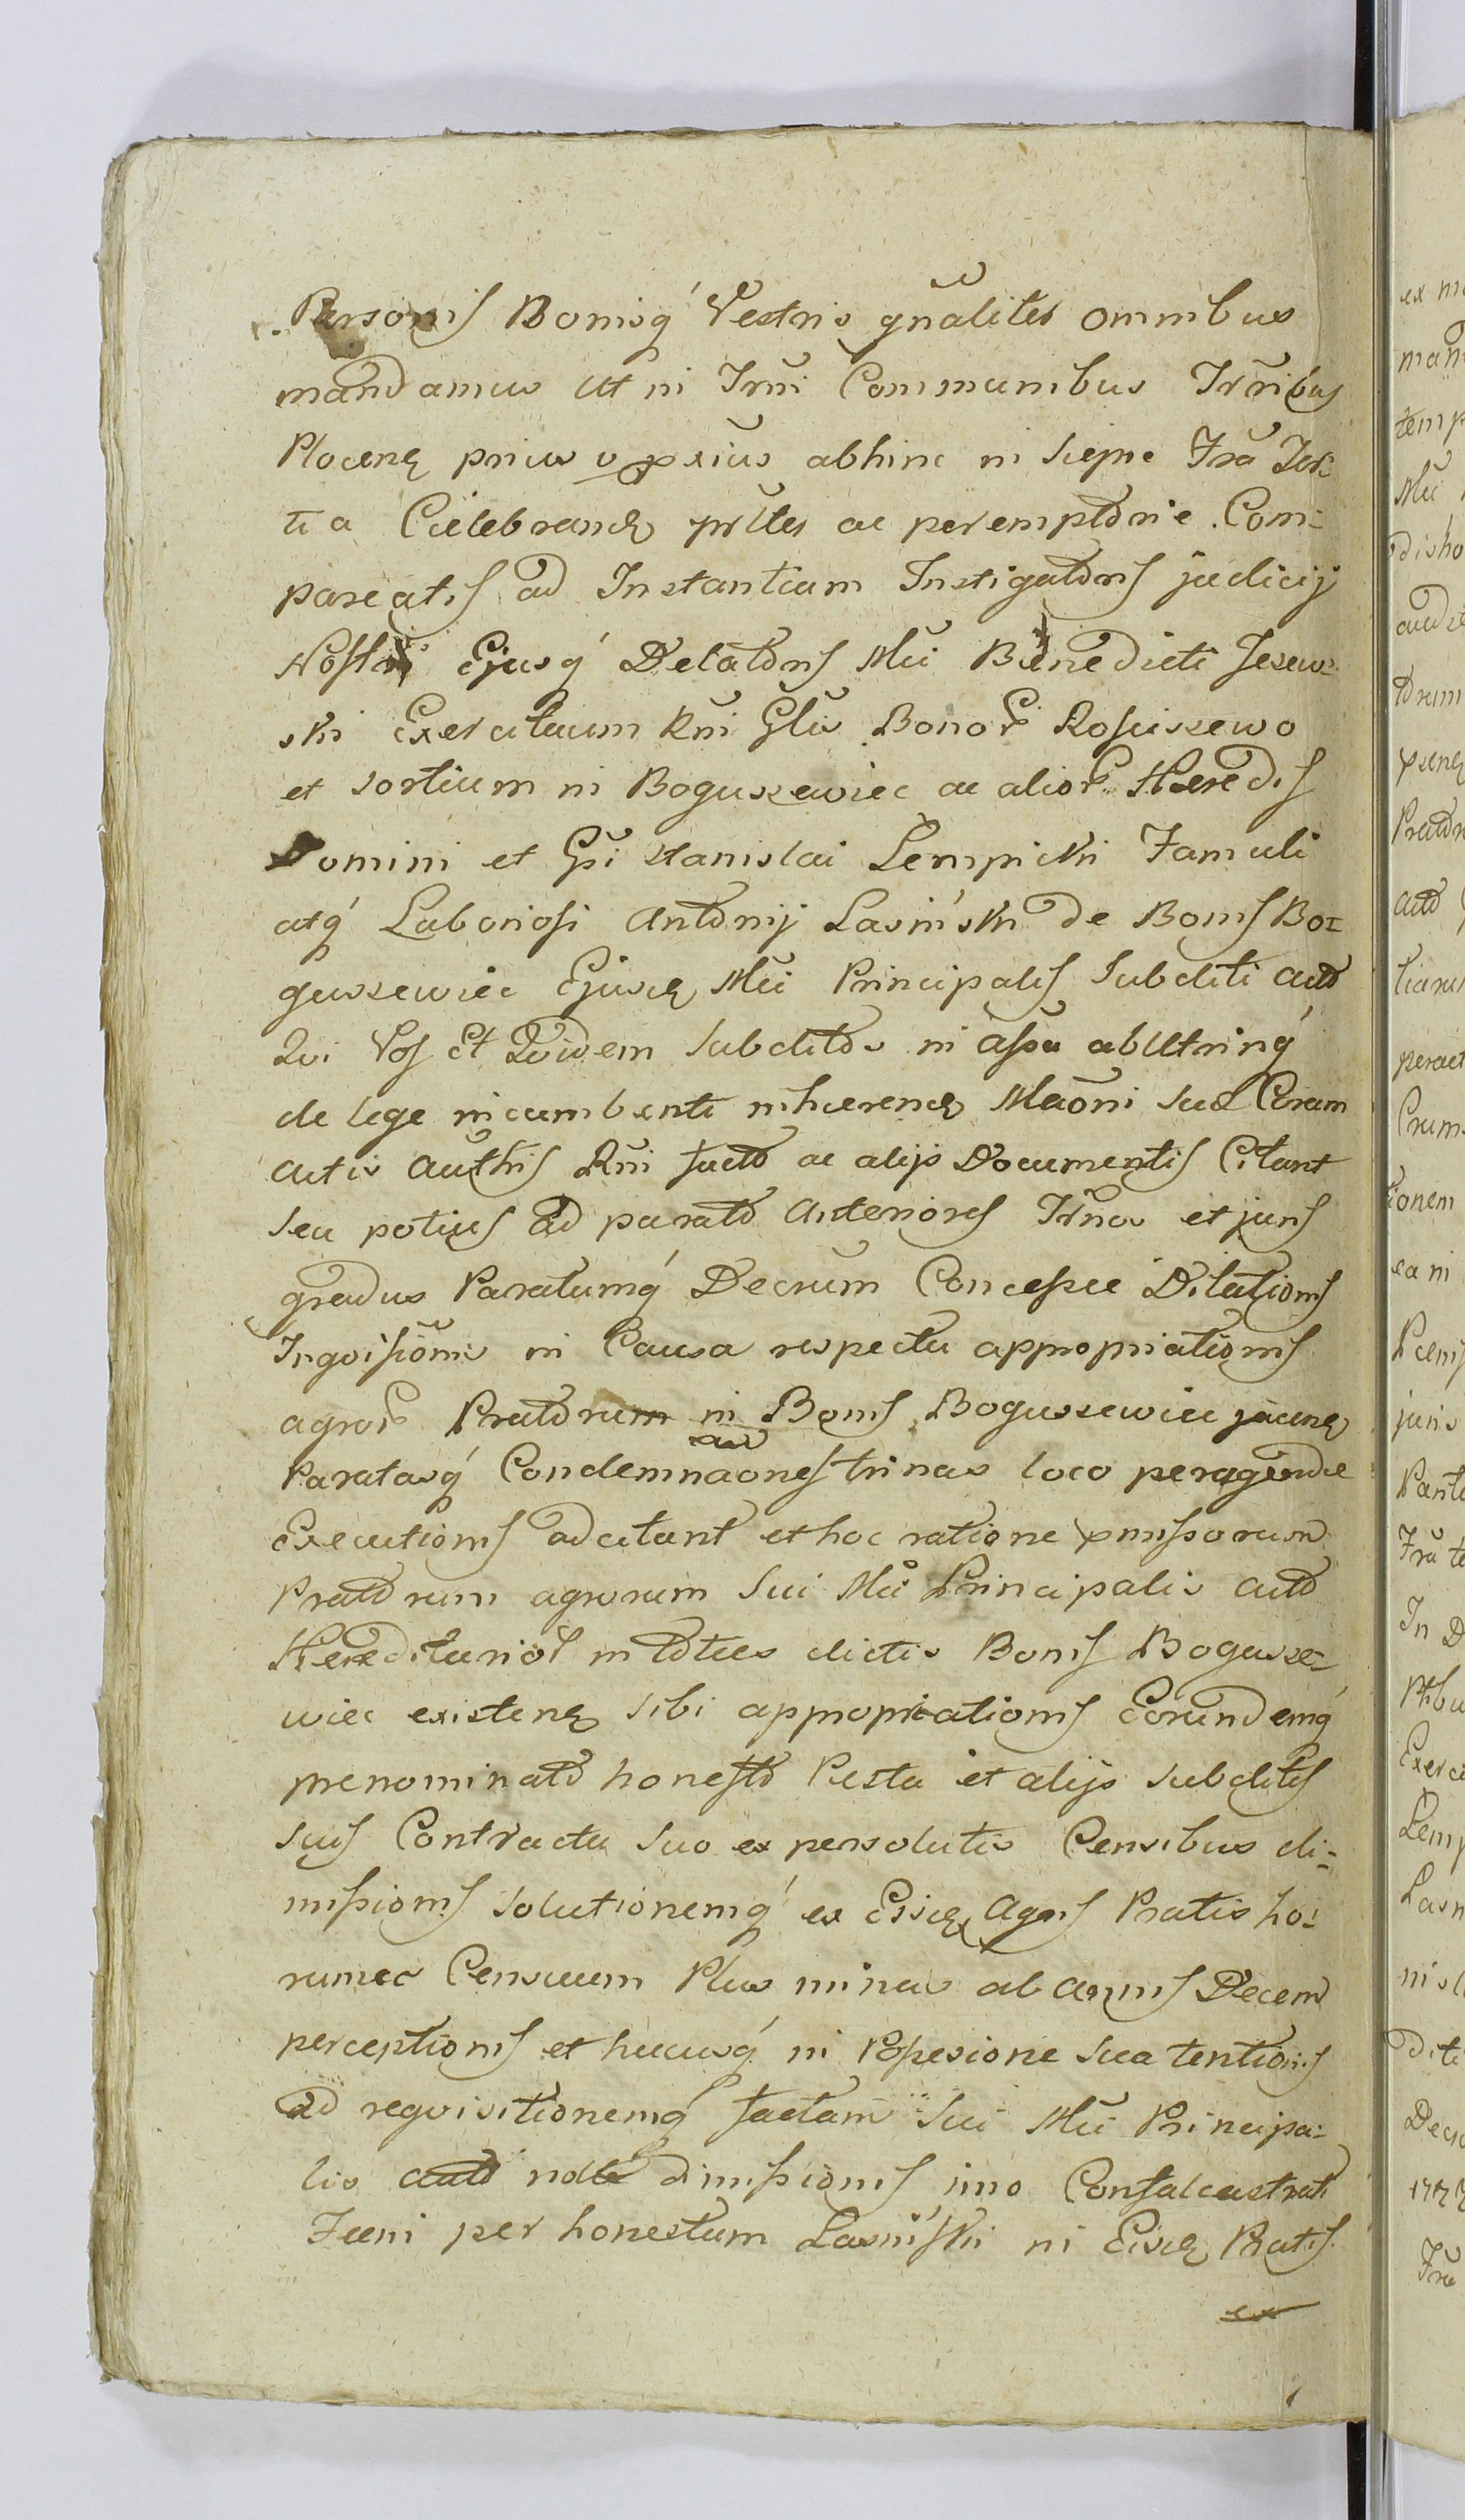 Personis Bonisq́ Vestris gñaliter omnibus
mandamus ut in Trm̃i Communibus Trr̃ribus
Plocenę prius abhinc in Sierpc Fra Ter:
tia Caelebrandę prl̃ter ac peremptorie Com=
pareatis ad Instantiam Instigatoris judicij
Nostri Ejusq́ Delatoris Mci Benedicti Jezew=
ski Exercituum Rñi Glis Bonor Rosciszewo
et sortium in Boguszewiec ac alior Haeredis
Domini et Gsi Stanislai Lempicki Famuli
atq́ Laboriosi Antonij Lasiński de Bonis Bo=
guszewiec Ejusdę Mci Principalis Subditi auto
Qui Vos Et Quidem Subditos in ab Utrinq́
de lege incumbenti inhaerendę Maõni suae Coram
actis Authis Rñi facto ac alijs Documentis Citant
seu potius ad parato Anteriores Trr̃nos et juris
gradus Paratumq́ Decrũm Concessae Dilationis
Inqvisiõnis in Causa respectu appropriationis
agror Pratorum in Bonis Boguszewiec jacenę
Paratasq́ Condemnaones trinas loco peragendae
Executionis adcitant et hoc ratione pmissorum
Pratorum agrorum Sui Mci Principalis auto
Haereditarior in toties dictis Bonis Bogusze=
wiec existenę sibi appropriationis Eorundemq́
prenominato honesto Pesta et alijs subditis
suis Contractu suo ex persolutis Censibus di=
missionis solutionemq́ ex Eisdę Agris Pratis ho=
rumce Censuum Plus minus ab annis Decem
perceptionis et hucusq́ in Possesione sua tentionis
ad reqvisitionemq́ factam Sui Mci Principa=
lis auto dimissionis imo Confalcastrati
Faeni per honestum Lasiński in Eisdę Pratis
ex